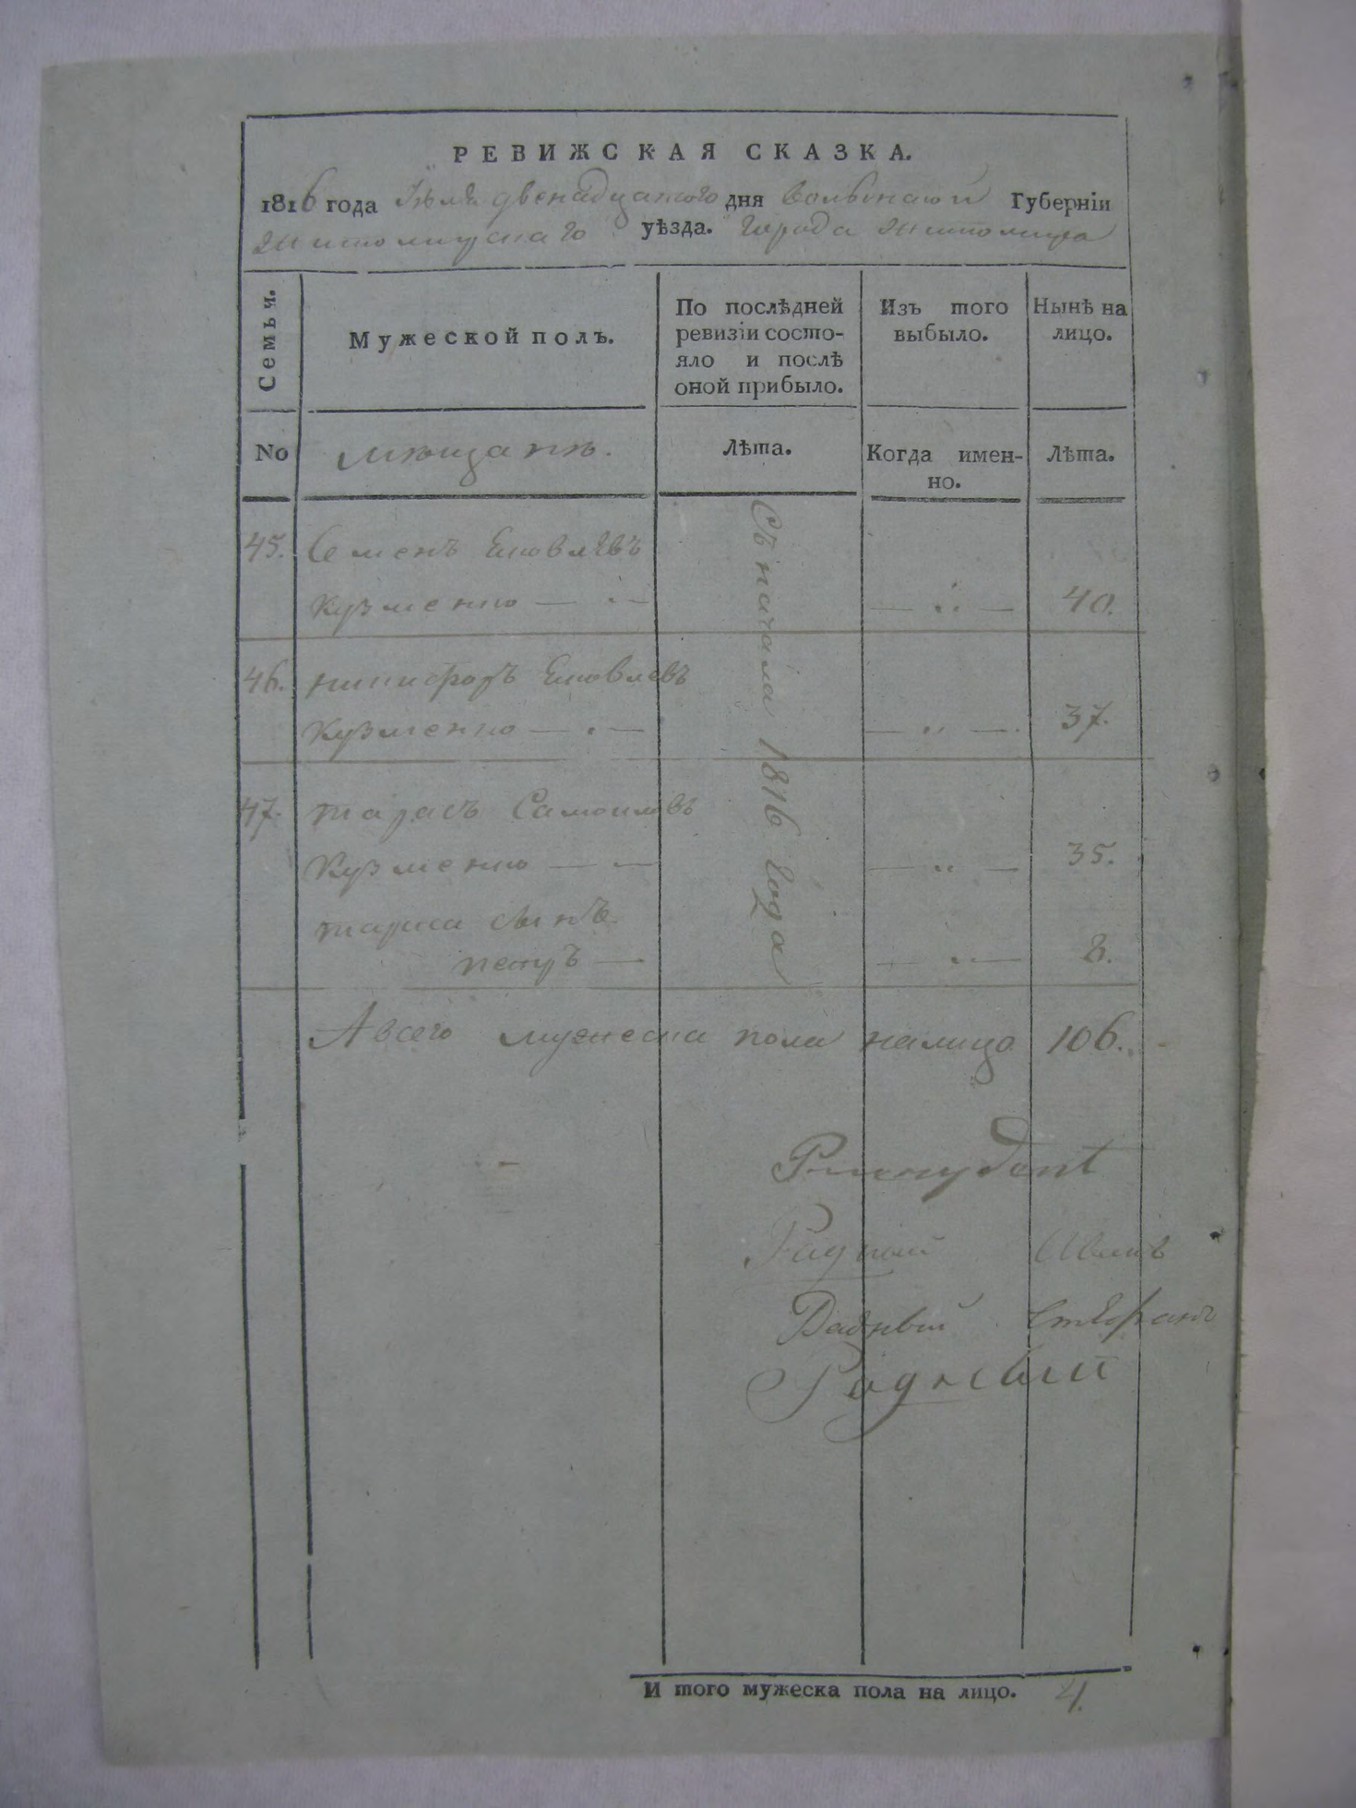 РЕВИЖСКАЯ СКАЗКА.
1816 года Іюля двенадцатого дня Волынской Губерніи
Житомирскаго уѣзда. Города Житомира
Семьи.
Мужеской полъ.
По послѣдней
ревизіи состо-
яло и послѣ
оной прибыло.
Изъ того
выбыло.
Нынѣ на
лицо.
No мѣщанъ. Лѣта. Когда имен-
но. Лѣта.
Съ начала 1816 года
45. Семенъ Яковлевъ
Кузменко — „ — 40.
46. Никифоръ Яковлевъ
Кузменко — „ — 37.
47. Тарасъ Самоиловъ
Кузменко — „ — 35.
Тараса сынъ
Петръ — „ — 8.
А всего мужеска пола налицо 106.
Ратный
Радный Стефанъ
Радный
И того мужеска пола на лицо. 4.